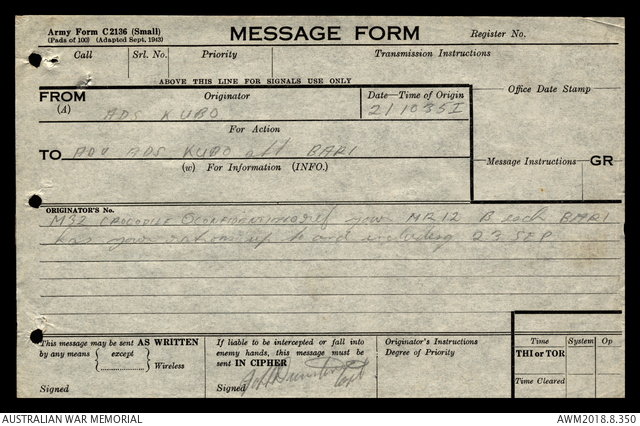 Army Form C 2136 (Small)
(Pads of 100) (Adapted Sept. 1943)
MESSAGE FORM
Register No.
Call
Srl. No.
Priority
Transmission Instructions
ABOVE THIS LINE FOR SIGNALS USE ONLY
FROM
(A)
Originator
ADS KUBO
Date—Time of Origin
211035I
Office Date Stamp
For Action
TO
ADV ADS KUBO att BARI
(w) For Information (INFO.)
Message Instructions
GR
ORIGINATOR'S No.
M32 CROCODILE ref your MR12 B BARI
has your rations up to and including 23 SEP
This message may be sent AS WRITTEN
by any means
except
Wireless
Signed
If liable to be intercepted or fall into
enemy hands, this message must be
sent IN CIPHER
Signed
Capt
Originator's Instructions
Degree of Priority
Time
System
Op
THI or TOR
Time Cleared
AUSTRALIAN WAR MEMORIAL
AWM2018.8.350